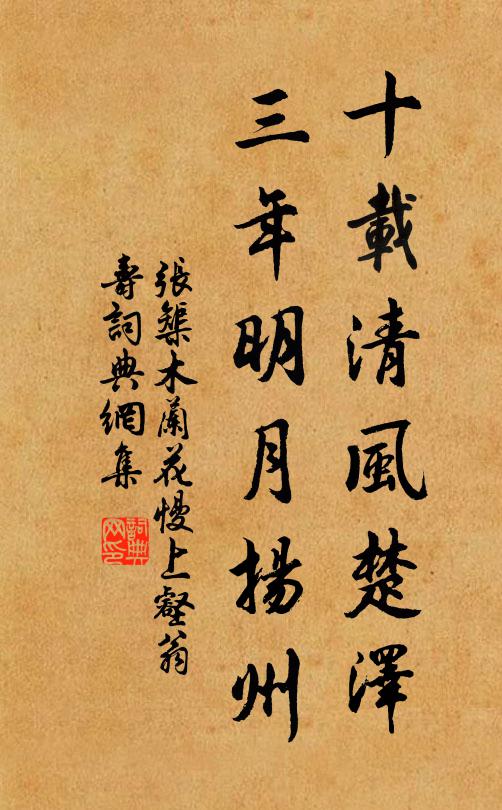 十載清風楚澤
三年明月揚州
張榘木蘭花慢上壑翁
壽詞典網集
詞典網印